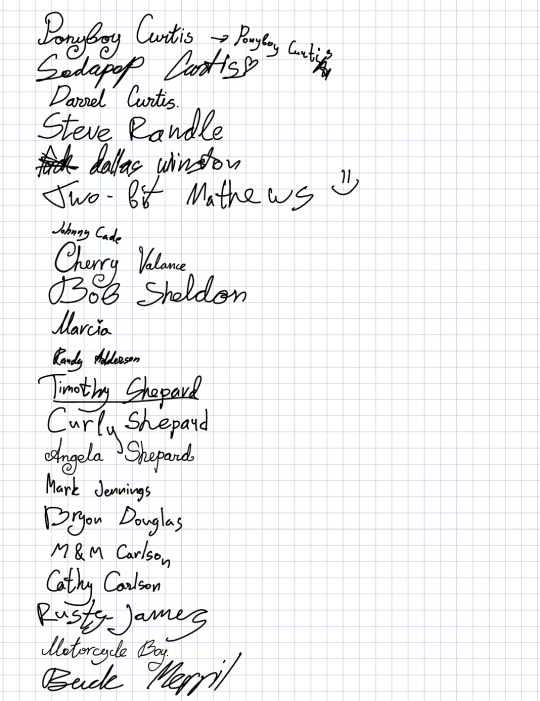 Ponyboy Curtis → Ponyboy Curtis
Sodapop Curtis♡
Darrel Curtis.
Steve Randle
dallas winston
Two-bit Mathews =)
Johnny Cade
Cherry Valance
Bob Sheldon
Marcia
Randy Adderson
Timothy Shepard
Curly Shepard
Angela Shepard
Mark Jennings
Bryon Douglas
M&M Carlson
Cathy Carlson
Rusty-James
Motorcycle Boy.
Buck Merril